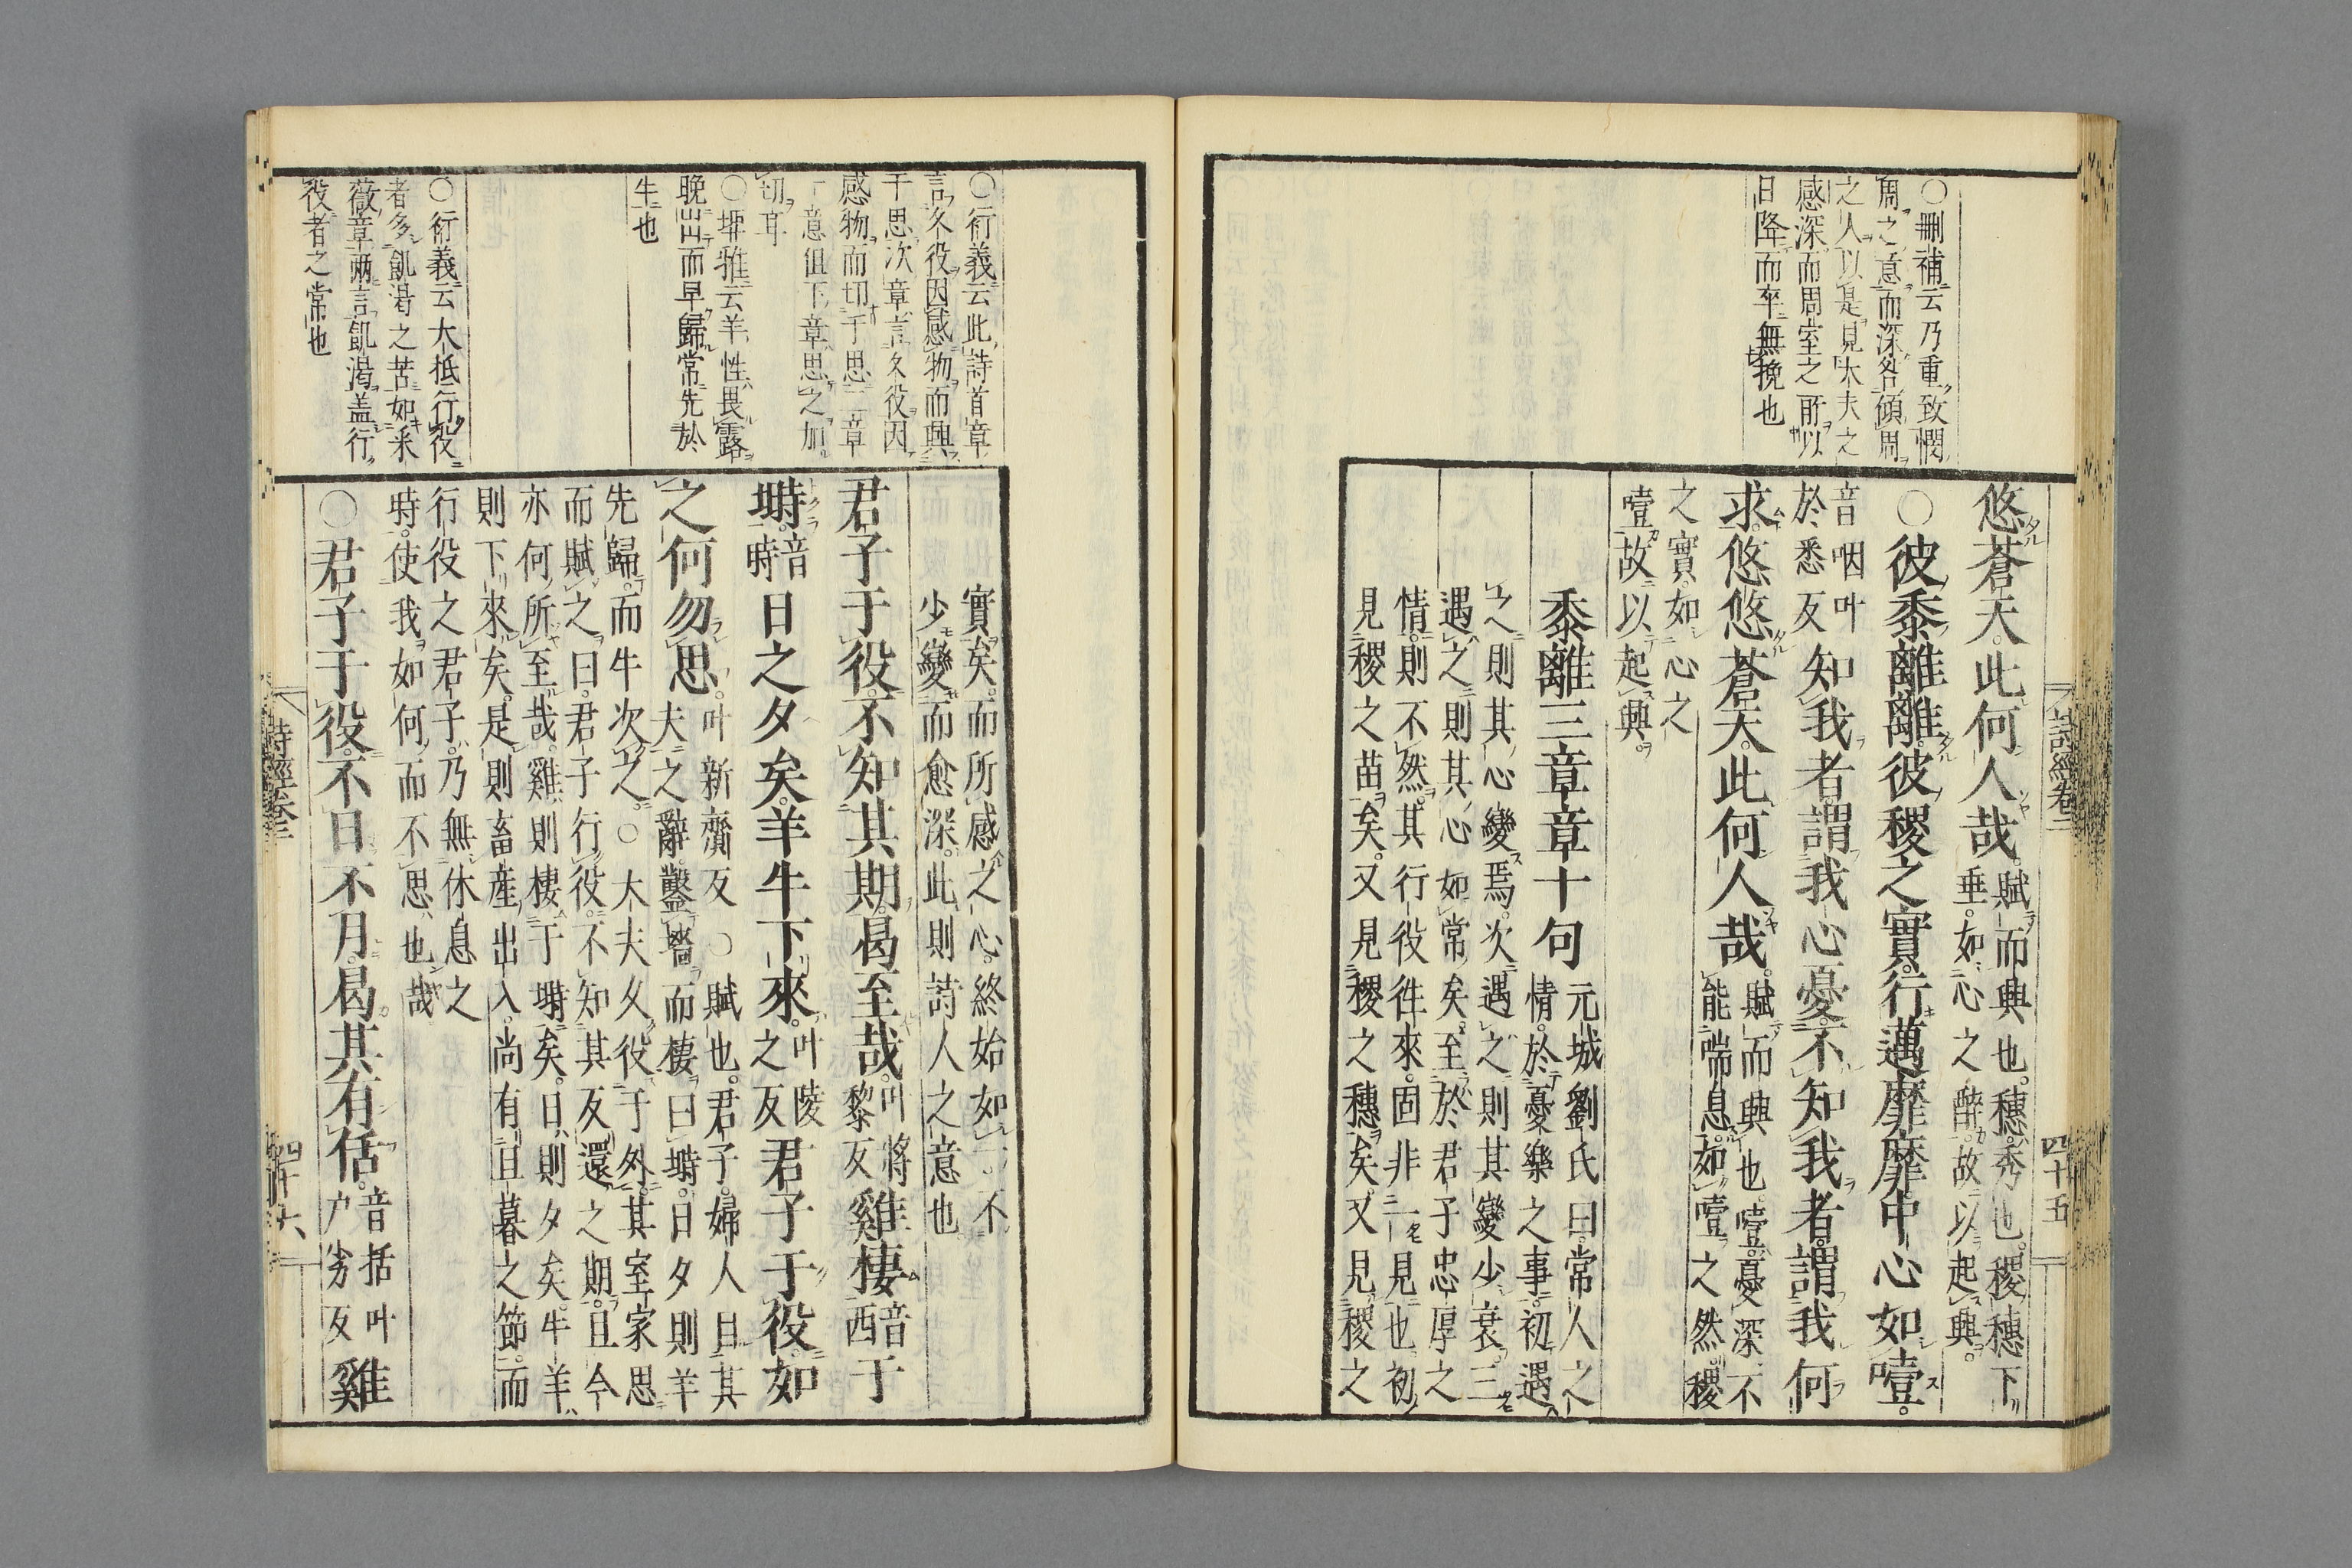 ○刪補云乃重致憫
周之意而深咎傾周
之人以是見大夫之
感深而周室之所以
日降而卒無挽也
悠蒼天此何人哉賦而興也穗秀也稷穗下
垂如心之醉故以起興
○彼黍離離彼稷之實行邁靡靡中心如噎
音咽叶
於悉反知我者謂我心憂不知我者謂我何
求悠悠蒼天此何人哉賦而興也噎憂深不
能喘息如噎之然稷
之實如心之
噎故以起興
黍離三章章十句元城劉氏曰常人之
情於憂樂之事初遇
之則其心變焉次遇之則其變少衰三
遇之則其心如常矣至於君子忠厚之
情則不然其行役往來固非一見也初
見稷之苗矣又見稷之穗矣又見稷之
詩經卷二
四十五
○衍義云此詩首章
言久役因感物而興
于思次章言久役因
感物而切于思二章
一意但下章思之加
切耳
○埤雅云羊性畏露
晚出而早歸常先於
牛也
○衍義云大抵行役
者多飢渴之苦如采
薇章兩言飢渴盖行
役者之常也
實矣而所感之心終始如一不
少變而愈深此則詩人之意也
君子于役不知其期曷至哉叶將
黎反雞棲音
西于
塒音
時日之夕矣羊牛下來叶陵
之反君子于役如
之何勿思叶新齎反○賦也君子婦人目其
夫之辭鑿墻而棲曰塒日夕則羊
先歸而牛次之○大夫久役于外其室家思
而賦之曰君子行役不知其反還之期且今
亦何所至哉雞則棲于塒矣日則夕矣牛羊
則下來矣是則畜產出入尚有旦暮之節而
行役之君子乃無休息之
時使我如何而不思也哉
○君子于役不日不月曷其有佸音括叶
戶劣反雞
詩經卷三
四十六